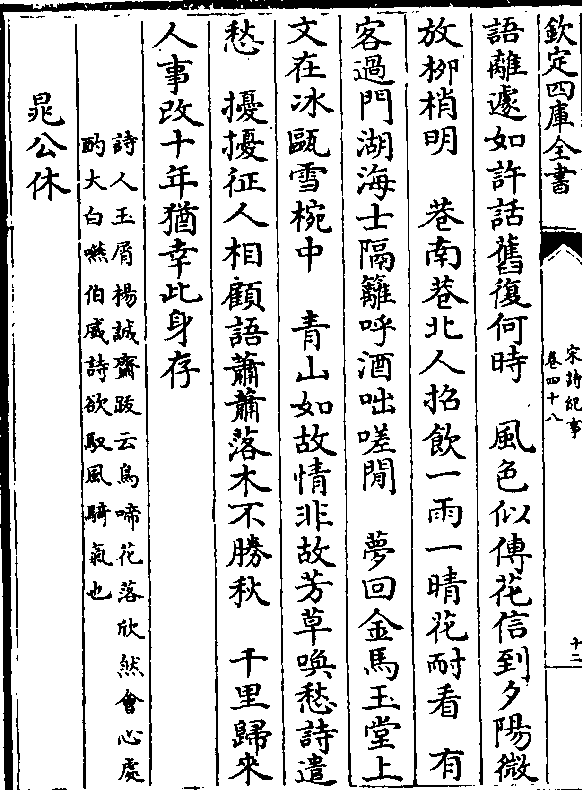 欽定四庫全書
宋詩紀事
卷四十八
十二
語離遽如許話舊復何時　風色似傳花信到夕陽微
放柳梢明　巷南巷北人招飲一雨一晴花耐看　有
客過門湖海士隔籬呼酒咄嗟間　夢回金馬玉堂上
文在冰甌雪椀中　青山如故情非故芳草喚愁詩遣
愁　擾擾征人相顧語蕭蕭落木不勝秋　千里歸來
人事改十年猶幸此身存
詩人玉屑楊誠齋跋云鳥啼花落欣然會心處
酌大白嚥伯威詩欲馭風騎氣也
晁公休